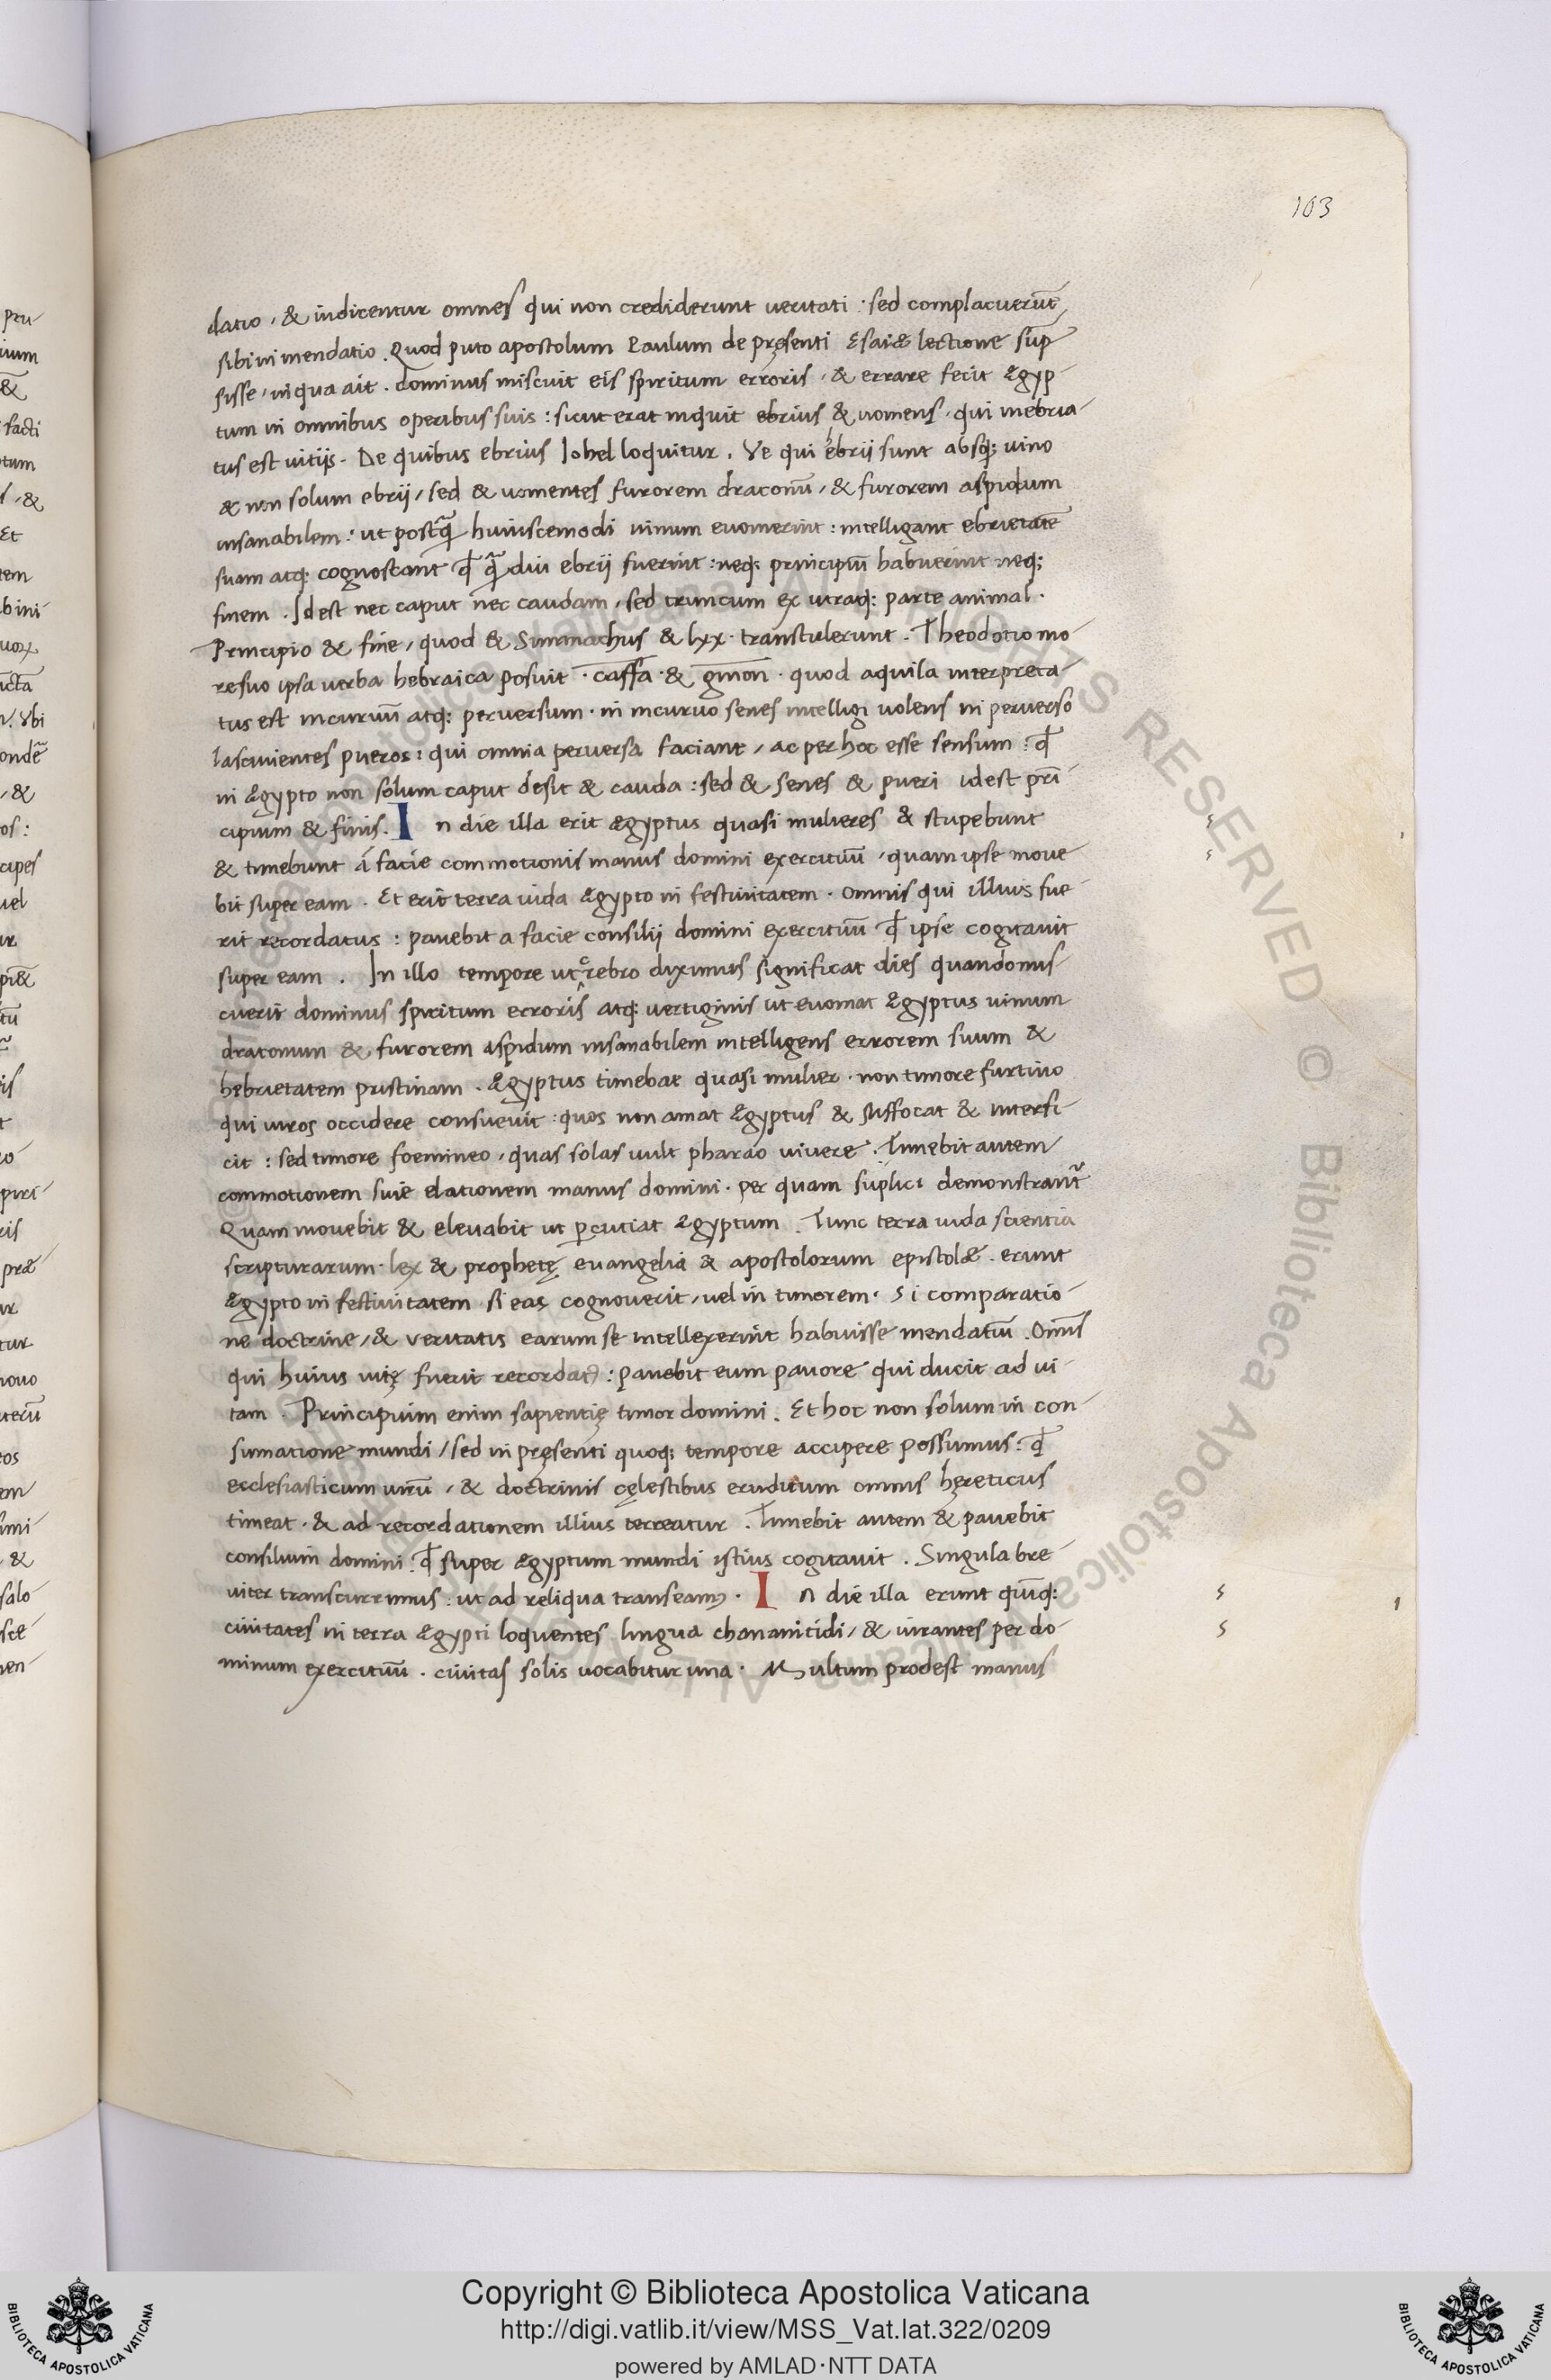 163
datio, & iudicentur omnes qui non crediderunt veritati : sed complacuerūt
sibi in mendatio. Quod puto apostolum Paulum de pręsenti Esaiæ lectione sūp
sisse, in qua ait. dominus miscuit eis spiritum erroris, & errare fecit Ægyp
tum in omnibus operibus suis : sicut erat inquit ebrius & uomens, qui inebria
tus est uitijs. De quibus ebrius Iohel loquitur. Ve qui ebrij sunt absq; uino
& non solum ebrij, sed & uomentes furorem draconū, & furorem aspidum
insanabilem : ut postq̃ huiuscemodi uinum euomerint : intelligant ebrietatē
suam atq; cognoscant q̄ q̃diu ebrij fuerint : neq; principiū habuerint neq;
finem. Idest nec caput nec caudam, sed truncum ex utraq; parte animal.
Principio & fine, quod & Simmachus & lxx. transtulerunt. Theodotio mo
re suo ipsa uerba hebraica posuit. caffa. & gmon. quod aquila interpreta
tus est incuruū atq; peruersum. in incuruo senes intelligi uolens in peruerso
lasciuientes pueros : qui omnia peruersa faciant, ac per hoc esse sensum : q̄
in Ægypto non solum caput desit & cauda : sed & senes & pueri idest prī
cipium & finis. In die illa erit ægyptus quasi mulieres & stupebunt
& timebunt á facie commotionis manus domini exercituū, quam ipse moue
bit super eam. Et erit terra iuda Ægypto in festiuitatem. omnis qui illius fue
rit recordatus : pauebit a facie consilij domini exercituū q̄ ipse cogitauit
super eam. In illo tempore ut crebro diximus significat dies quando mis
cuerit dominus spiritum erroris atq; uertiginis ut euomat Ægyptus uinum
draconum & furorem aspidum insanabilem intelligens errorem suum &
hebrietatem pristinam. Ægyptus timebat quasi mulier. non timore furtiuo
qui uiros occidere consueuit : quos non amat Ægyptus & suffocat & interfi
cit : sed timore foemineo, quas solas uult pharao uiuere. Timebit autem
commotionem siue elationem manus domini. per quam suplici demonstrant᷑
Quam mouebit & eleuabit ut ꝑcutiat Ægyptum. Tunc terra iuda scientia
scripturarum. lex & prophetę euangelia & apostolorum epistolæ. erunt
Ægypto in festiuitatem si eas cognouerit, uel in timorem. Si comparatio
ne doctrine, & veritatis earum se intellexerint habuisse mendatiū. Omīs
qui huius uitę fuerit recordatꝰ : pauebit eum pauore qui ducit ad ui
tam. Principium enim sapientię timor domini. Et hoc non solum in con
sumatione mundi, sed in pręsenti quoq; tempore accipere possumus : q̄
ecclesiasticum uirū, & doctrinis cęlestibus eruditum omnis hęreticus
timeat. & ad recordationem illius terreatur. Timebit autem & pauebit
consilium domini. q̄ super Ægyptum mundi istius cogitauit. Singula bre
uiter transcurrimus. ut ad reliqua transeamꝰ. In die illa erunt quīq;
ciuitates in terra Ægypti loquentes lingua chananitidi, & iurantes per do
minum exercituū. ciuitas solis uocabitur una. Multum prodest manus
Copyright © Biblioteca Apostolica Vaticana
http://digi.vatlib.it/view/MSS_Vat.lat.322/0209
powered by AMLAD·NTT DATA